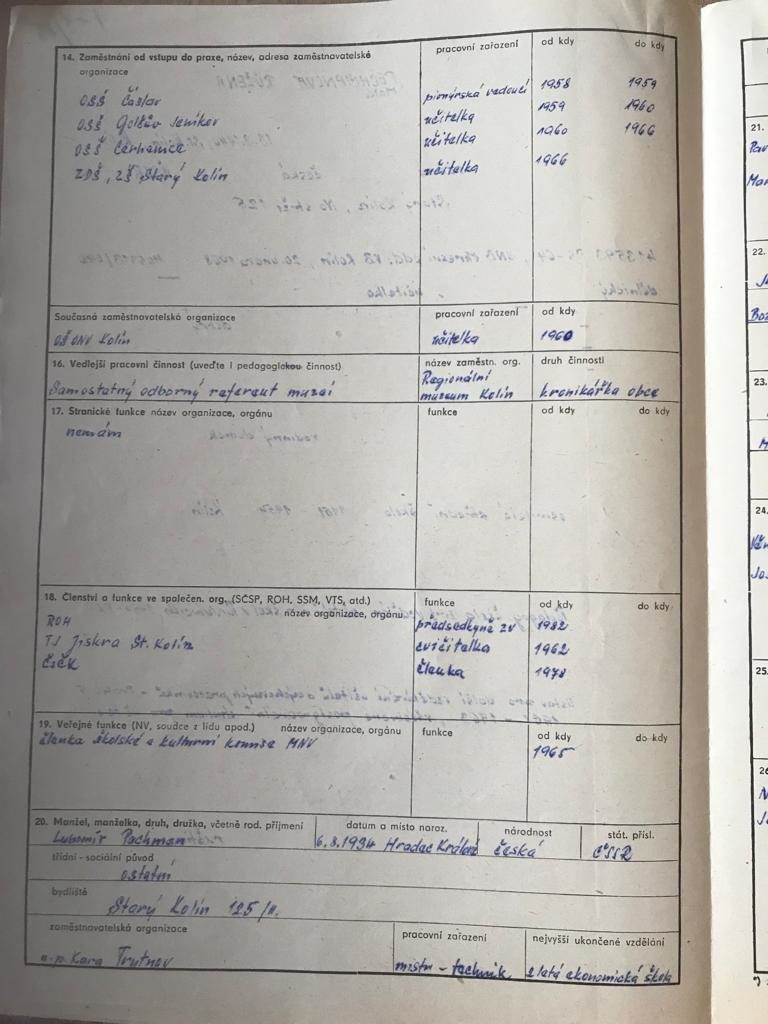 14. Zaměstnání od vstupu do praxe, název, adresa zaměstnavatelské organizace pracovní zařazení od kdy do kdy
OSŠ Čáslav pionýrská vedoucí 1958 1959
OSŠ Golčův Jeníkov učitelka 1959 1960
OSŠ Cerhenice učitelka 1960 1966
ZDŠ, ZŠ Starý Kolín učitelka 1966
Současná zaměstnavatelská organizace pracovní zařazení od kdy
OŠ ONV Kolín učitelka 1960
16. Vedlejší pracovní činnost (uveďte i pedagogickou činnost) název zaměstn. org. druh činnosti
Samostatný odborný referent muzeí Regionální muzeum Kolín kronikářka obce
17. Stranické funkce název organizace, orgánu funkce od kdy do kdy
nemám
18. Členství a funkce ve společen. org. (SČSP, ROH, SSM, VTS, atd.) název organizace, orgánu funkce od kdy do kdy
ROH předsedkyně ZV 1982
TJ Jiskra St. Kolín cvičitelka 1962
ČSČK členka 1978
19. Veřejné funkce (NV, soudce z lidu apod.) název organizace, orgánu funkce od kdy do kdy
členka školské a kulturní komise MNV 1965
20. Manžel, manželka, druh, družka, včetně rod. příjmení datum a místo naroz. národnost stát. přísl.
Lubomír Pachman 6.8.1934 Hradec Králové česká ČSSR
třídní - sociální původ
ostatní
bydliště
Starý Kolín 125/II.
zaměstnavatelská organizace pracovní zařazení nejvyšší ukončené vzdělání
n.p. Kara Trutnov mistr - technik ekonomická škola
21.
22.
23.
24.
25.
26